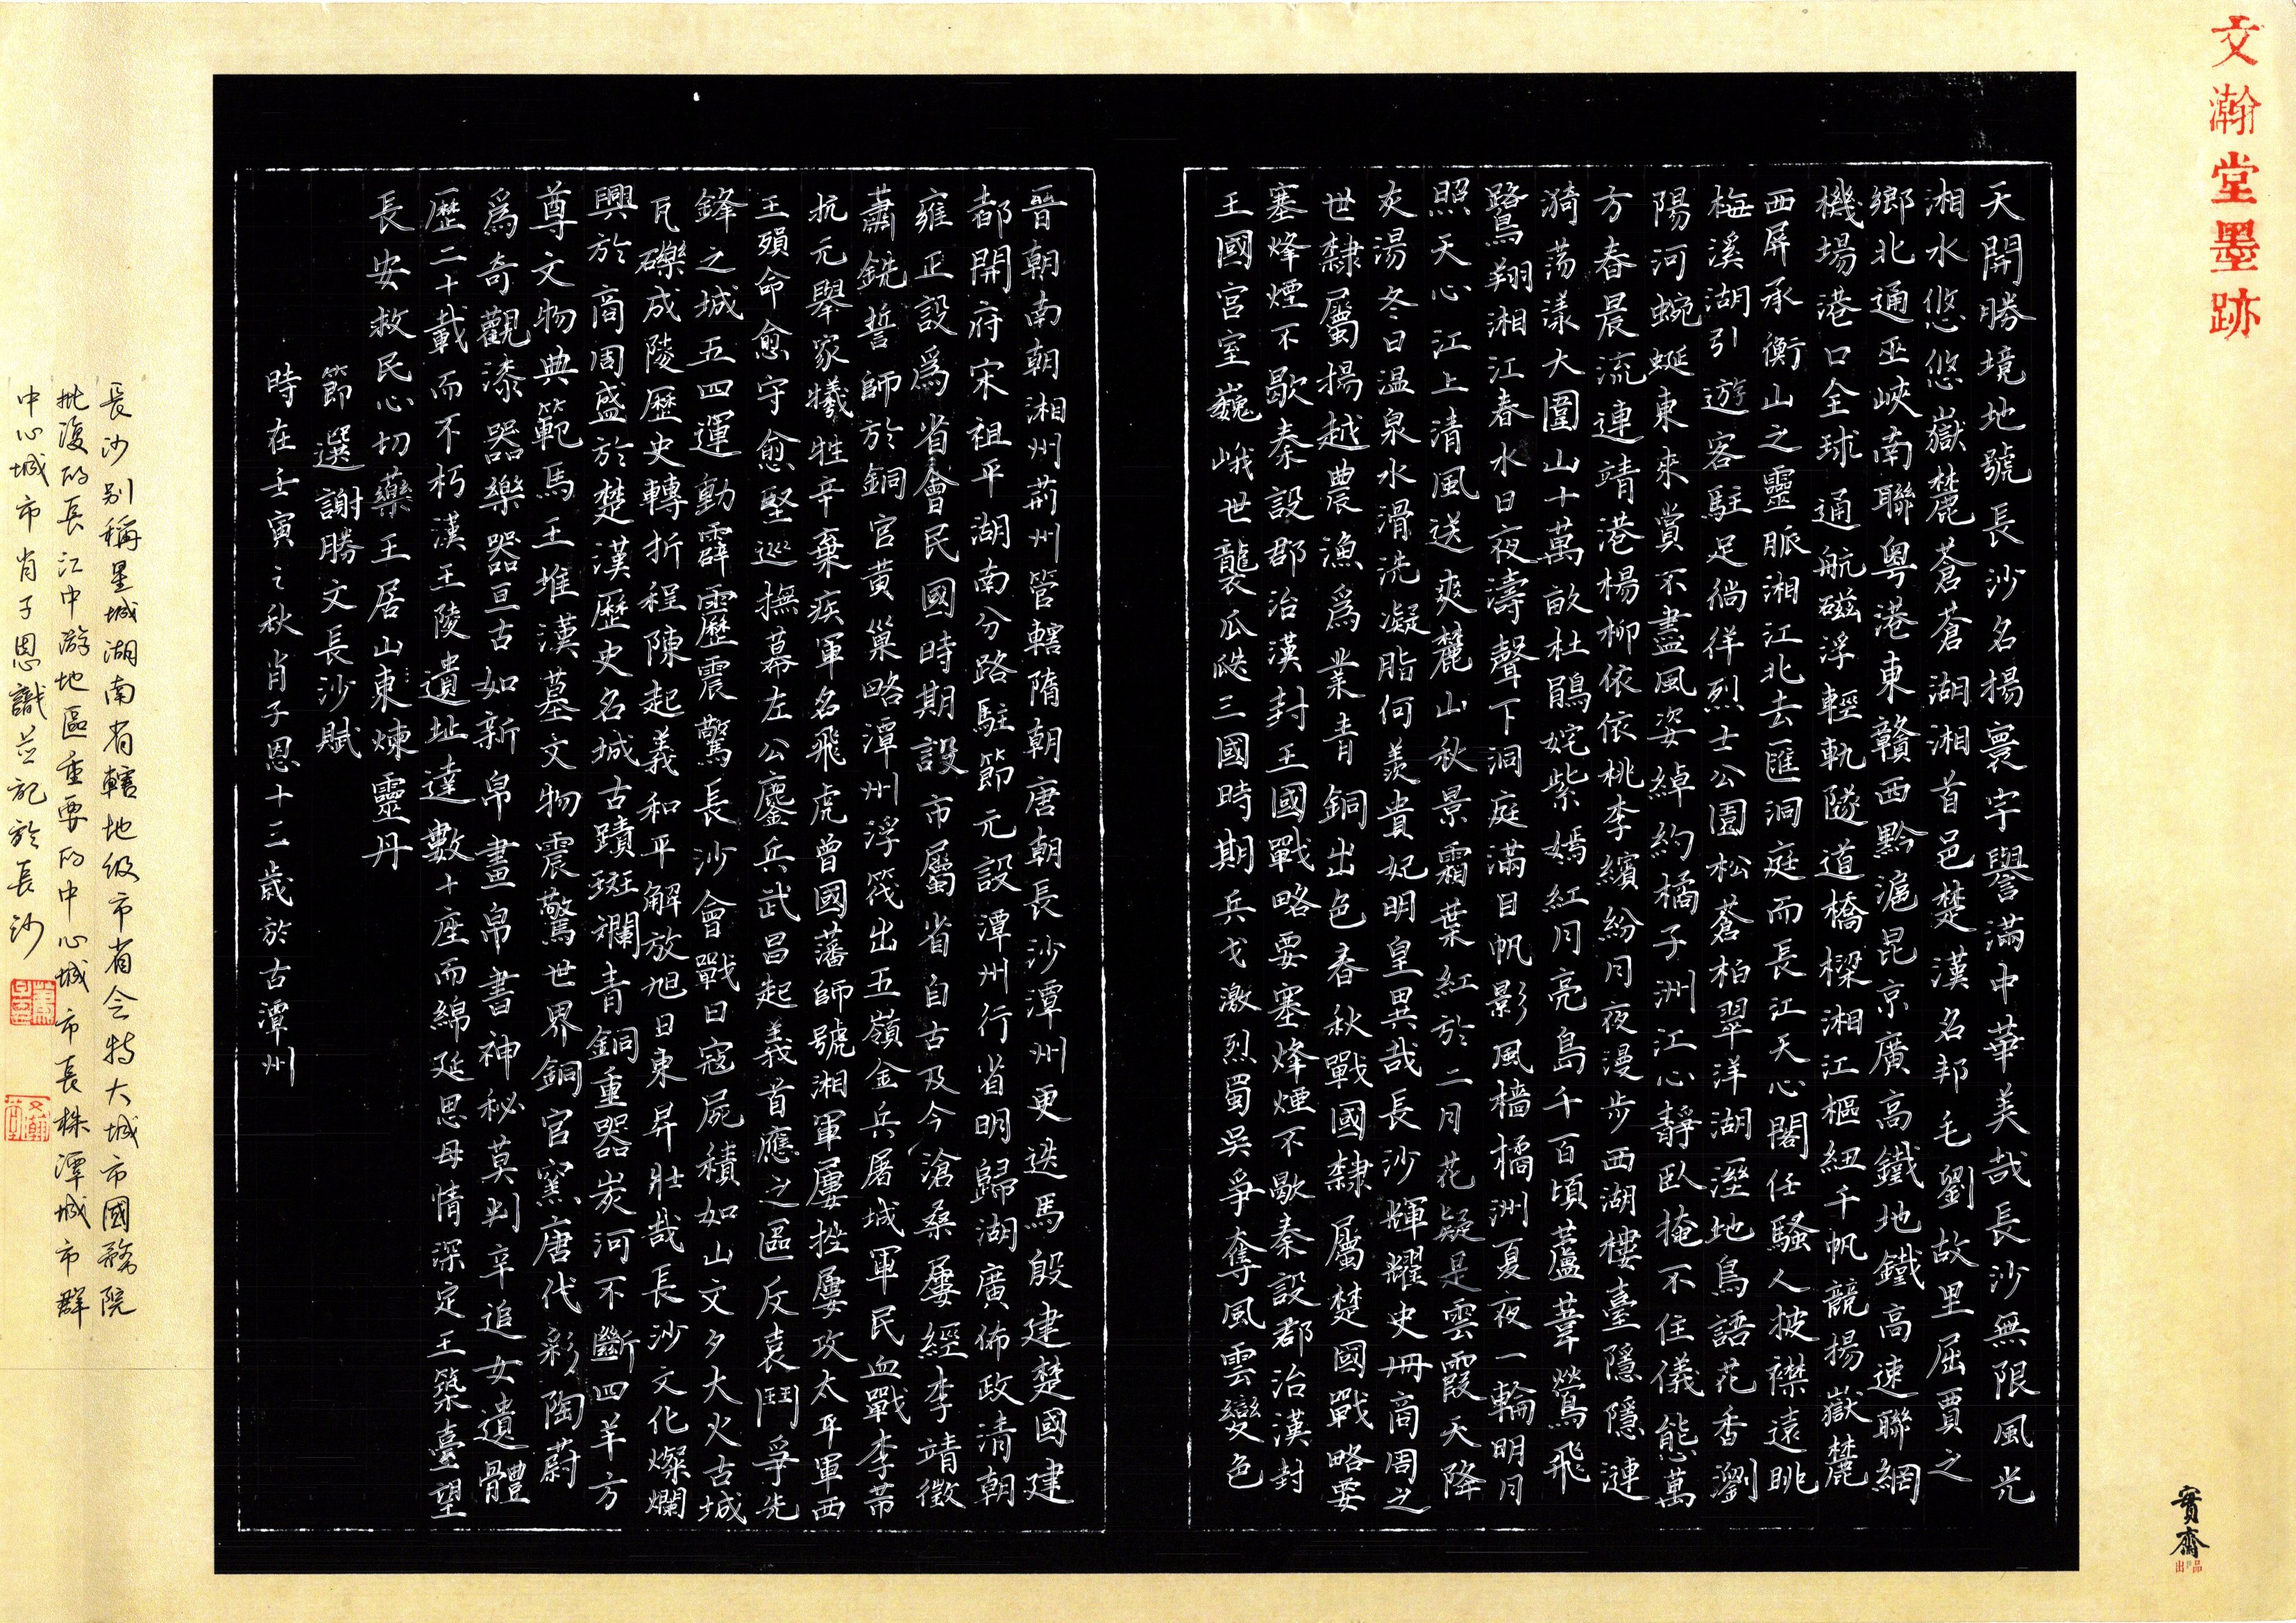 文瀚堂墨跡
天開勝境地號長沙名揚寰宇譽滿中華美哉長沙無限風光
湘水悠悠嶽麓蒼蒼湖湘首邑楚漢名邦毛劉故里屈賈之
鄉北通巫峽南聯粵港東贛西黔滬昆京廣高鐵地鐵高速聯網
機場港口全球通航磁浮輕軌隧道橋樑湘江樞紐千帆競揚嶽麓
西屏承衡山之靈脈湘江北去匯洞庭而長江天心閣任騷人披襟遠眺
梅溪湖引遊客駐足徜徉烈士公園松蒼柏翠洋湖溼地鳥語花香瀏
陽河蜿蜒東來賞不盡風姿綽約橘子洲江心靜臥掩不住儀態萬
方春晨流連靖港楊柳依依桃李繽紛月夜漫步西湖樓臺隱隱漣
漪蕩漾大圍山十萬畝杜鵑姹紫嫣紅月亮島千百頃蘆葦鶯飛
鷺翔湘江春水日夜濤聲下洞庭滿目帆影風檣橘洲夏夜一輪明月
照天心江上清風送爽麓山秋景霜葉紅於二月花疑是雲霞天降
灰湯冬日溫泉水滑洗凝脂何羨貴妃明皇異哉長沙輝耀史冊商周之
世隸屬揚越農漁為業青銅出色春秋戰國隸屬楚國戰略要
塞烽煙不歇秦設郡治漢封王國戰略要塞烽煙不歇秦設郡治漢封
王國宮室巍峨世襲瓜瓞三國時期兵戈激烈蜀吳爭奪風雲變色
晉朝南朝湘州荊州管轄隋朝唐朝長沙潭州更迭馬殷建楚國建
都開府宋祖平湖南分路駐節元設潭州行省明歸湖廣佈政清朝
雍正設為省會民國時期設市屬省自古及今滄桑屢經李靖徵
蕭銑誓師於銅官黃巢略潭州浮筏出五嶺金兵屠城軍民血戰李芾
抗元舉家犧牲辛棄疾軍名飛虎曾國藩師號湘軍屢挫屢攻太平軍西
王殞命愈守愈堅巡撫幕左公鏖兵武昌起義首應之區反袁鬥爭先
鋒之城五四運動霹靂震驚長沙會戰日寇屍積如山文夕大火古城
瓦礫成陵歷史轉折程陳起義和平解放旭日東昇壯哉長沙文化燦爛
興於商周盛於楚漢歷史名城古蹟斑斕青銅重器炭河不斷四羊方
尊文物典範馬王堆漢墓文物震驚世界銅官窯唐代彩陶蔚
為奇觀漆器樂器亘古如新帛畫帛書神秘莫判辛追女遺體
歷二十載而不朽漢王陵遺址達數十座而綿延思母情深定王築臺望
長安救民心切藥王居山東煉靈丹
節選謝勝文長沙賦
時在壬寅之秋肖子恩十三歲於古潭州
長沙別稱星城湖南省轄地級市省會特大城市國務院
批復的長江中游地區重要的中心城市長株潭城市群
中心城市肖子恩識並記於長沙
實齋
出品